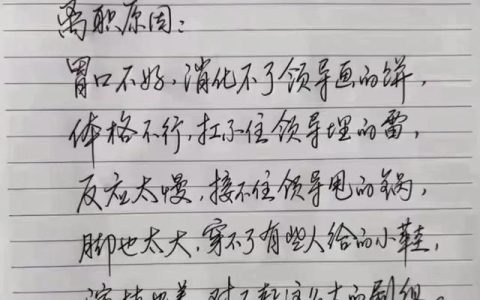 离职原因：
胃口不好，消化不了领导画的饼，
体格不行，扛不住领导埋的雷，
反应太慢，接不住领导甩的锅，
脚也太大，穿不了有些人给的小鞋，
演技太差，对不起这么大的剧组。